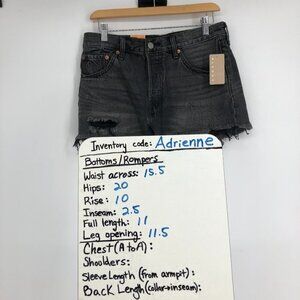 Inventory code: Adrienne
Bottoms/Rompers
Waist across: 15.5
Hips: 20
Rise: 10
Inseam: 2.5
Full length: 11
Leg opening: 11.5
Chest (A to A):
Shoulders:
Sleeve Length (from armpit):
Back Length (collar→inseam):